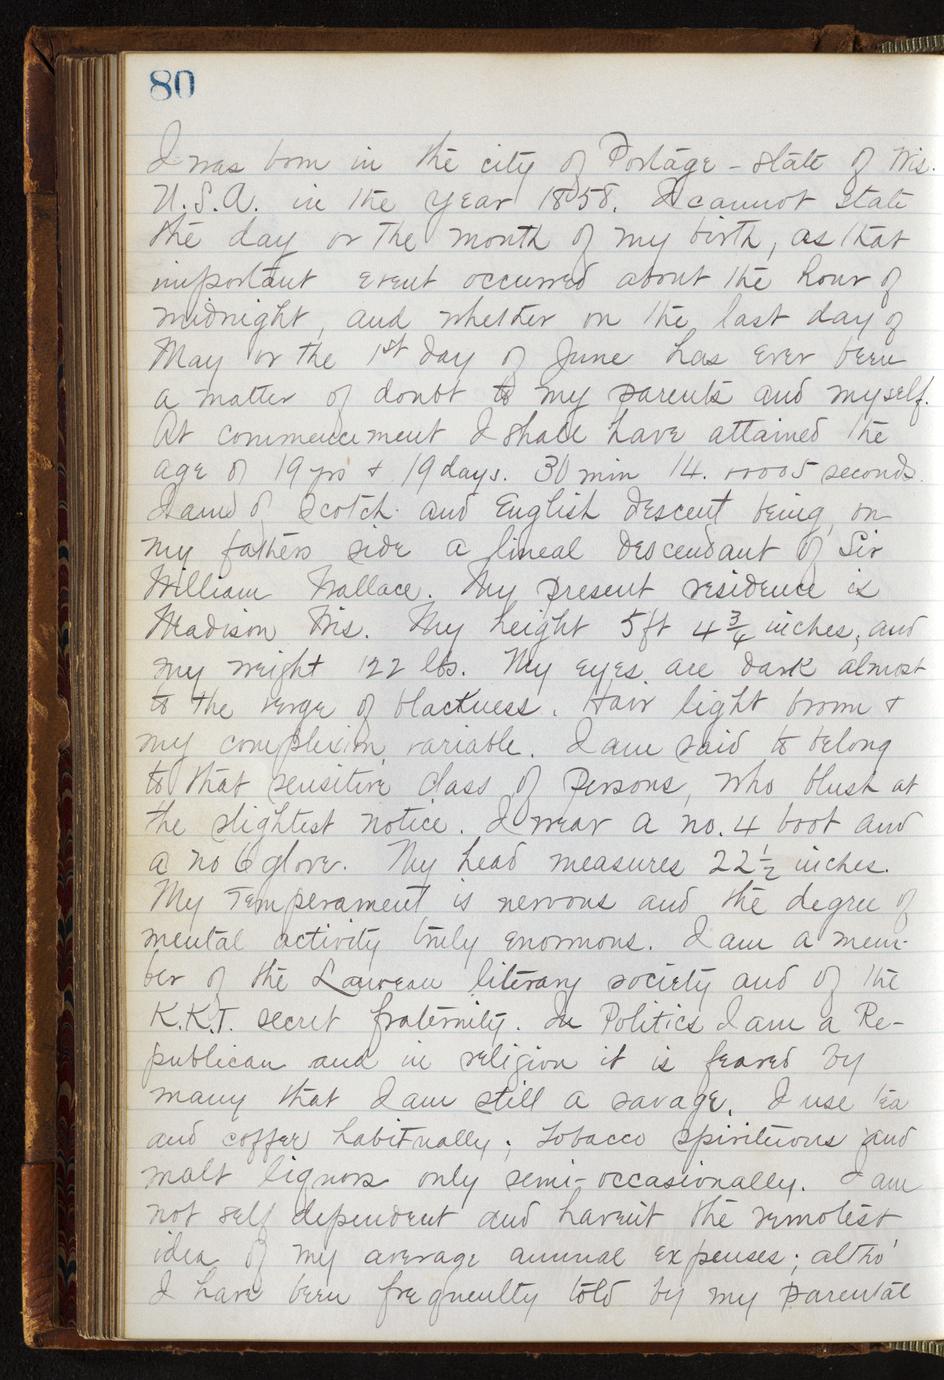 80
I was born in the city of Portage - state of Wis.
U.S.A. in the year 1858. I cannot state
the day or the month of my birth, as that
important event occurred about the hour of
midnight, and whether on the last day of
May or the 1st day of June has ever been
a matter of doubt to my parents and myself.
At commencement I shall have attained the
age of 19 yrs & 19 days. 30 min 14. 00005 seconds.
I am of Scotch and English descent being, on
my fathers side a lineal descendant of Sir
William Wallace. My present residence is
Madison Wis. My height 5 ft 4 3/4 inches, and
my weight 122 lbs. My eyes are dark almost
to the verge of blackness. Hair light brown &
my complexion variable. I am said to belong
to that sensitive class of persons, who blush at
the slightest notice. I wear a no. 4 boot and
a no 6 glove. My head measures 22 1/2 inches.
My Temperament is nervous and the degree of
mental activity truly enormous. I am a mem-
ber of the Laurean literary society and of the
K.K.T. secret fraternity. In Politics I am a Re-
publican and in religion it is feared by
many that I am still a savage. I use tea
and coffee habitually; tobacco spirituous and
malt liquors only semi-occasionally. I am
not self dependent and havent the remotest
idea of my average annual expenses; altho'
I have been frequently told by my parental